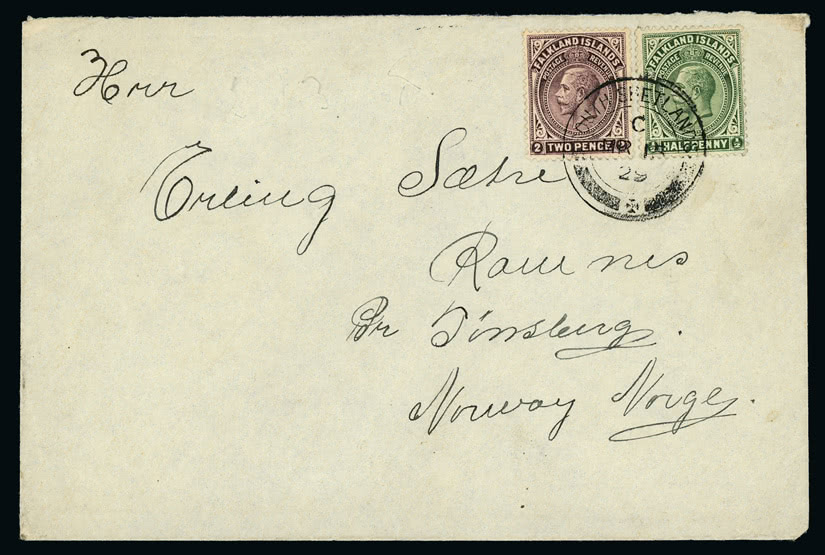 FALKLAND ISLANDS
POSTAGE REVENUE
2 TWO PENCE 2
FALKLAND ISLANDS
POSTAGE REVENUE
½ HALFPENNY ½
SHETLAND
C
29
Herr
Erling Sætre
Ramnes
Pr Tønsberg.
Norway Norge.